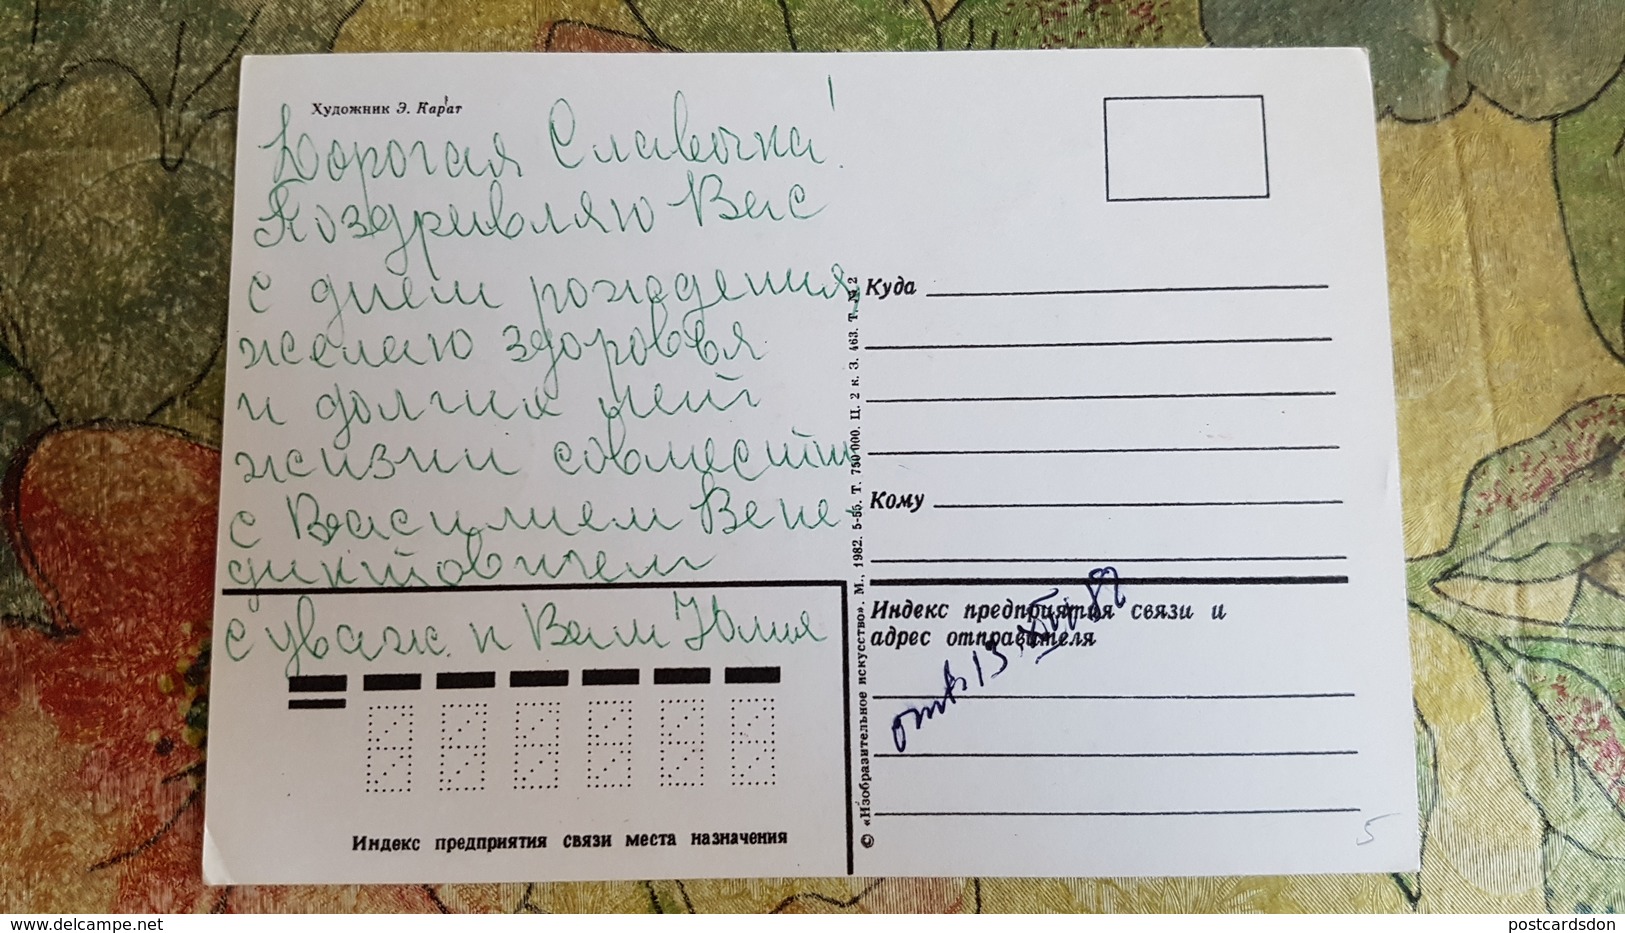 Художник Э. Карат
Дорогая Славочка!
Поздравляю Вас
с днем рождения,
желаю здоровья
и долгих лет
жизни совместн
с Василием Вене-
диктовичем
с уваж. к Вам Юлия
Индекс предприятия связи места назначения
© «Изобразительное искусство». М., 1982. 5-55. Т. 750 000. Ц. 2 к. З. 463. Т. № 2
Куда
Кому
Индекс предприятия связи и
адрес отправителя
отв 13
5
delcampe.net
postcardsdon